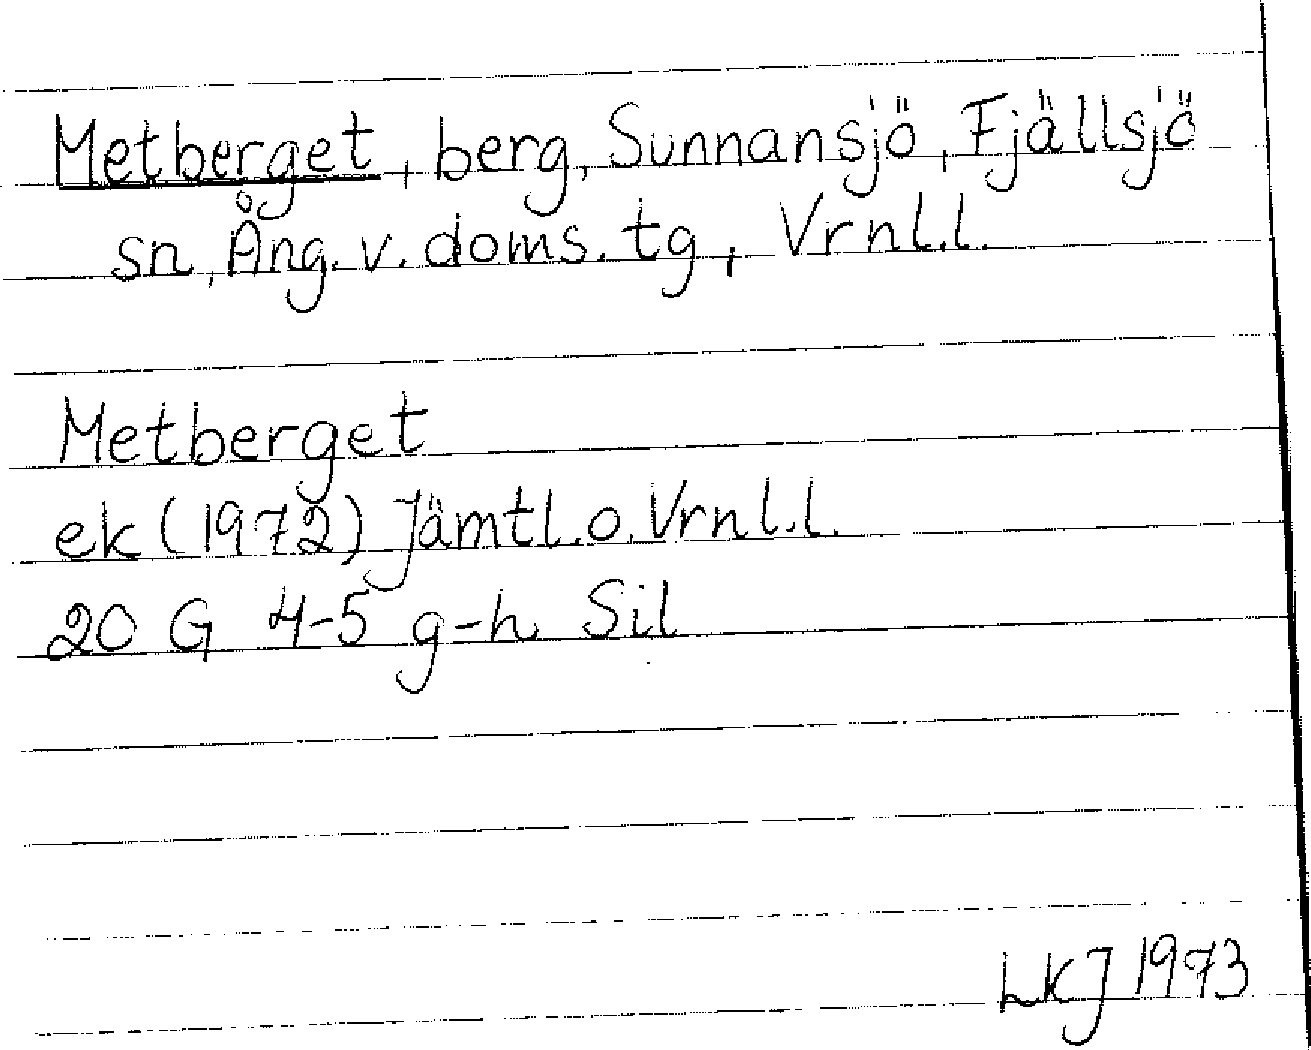 Metberget, berg, Sunnansjö, Fjällsjö
sn, Ång. v. doms. tg, Vrnl.l.
Metberget
ek (1972) Jämtl.o.Vrnl.l.
20 G 4-5 g-h Sil
LKJ 1973